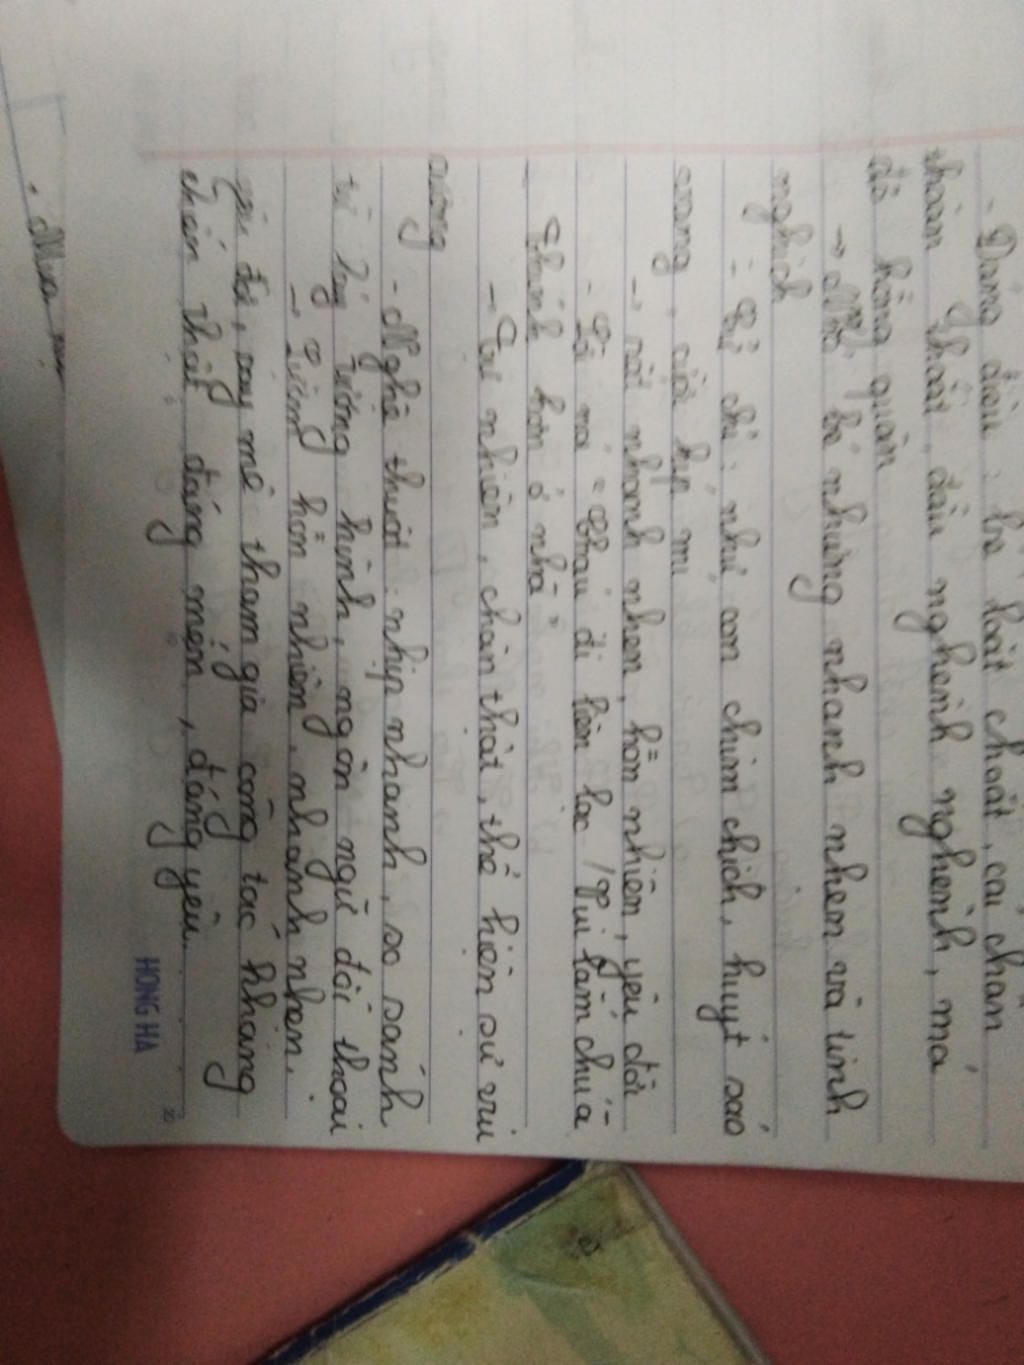 - Dáng điệu: bé loắt choắt, cái chân
thoăn thoắt, đầu nghênh nghênh, má
đỏ hồng quân
→ Nhỏ bé nhưng nhanh nhẹn và tinh
nghịch
- Cử chỉ: như con chim chích, huýt sáo
vang, cười híp mí
→ rất nhanh nhẹn, hồn nhiên, yêu đời
- Lời nói "Cháu đi liên lạc / Vui lắm chú à
Thích hơn ở nhà"
→ Tự nhiên, chân thật, thể hiện sự vui
sướng
- Nghệ thuật: nhịp nhanh, so sánh
từ láy tượng hình, ngôn ngữ đối thoại
→ Lượm hồn nhiên, nhanh nhẹn,
yêu đời, say mê tham gia công tác kháng
chiến thật đáng mến, đáng yêu.
HONG HA
20